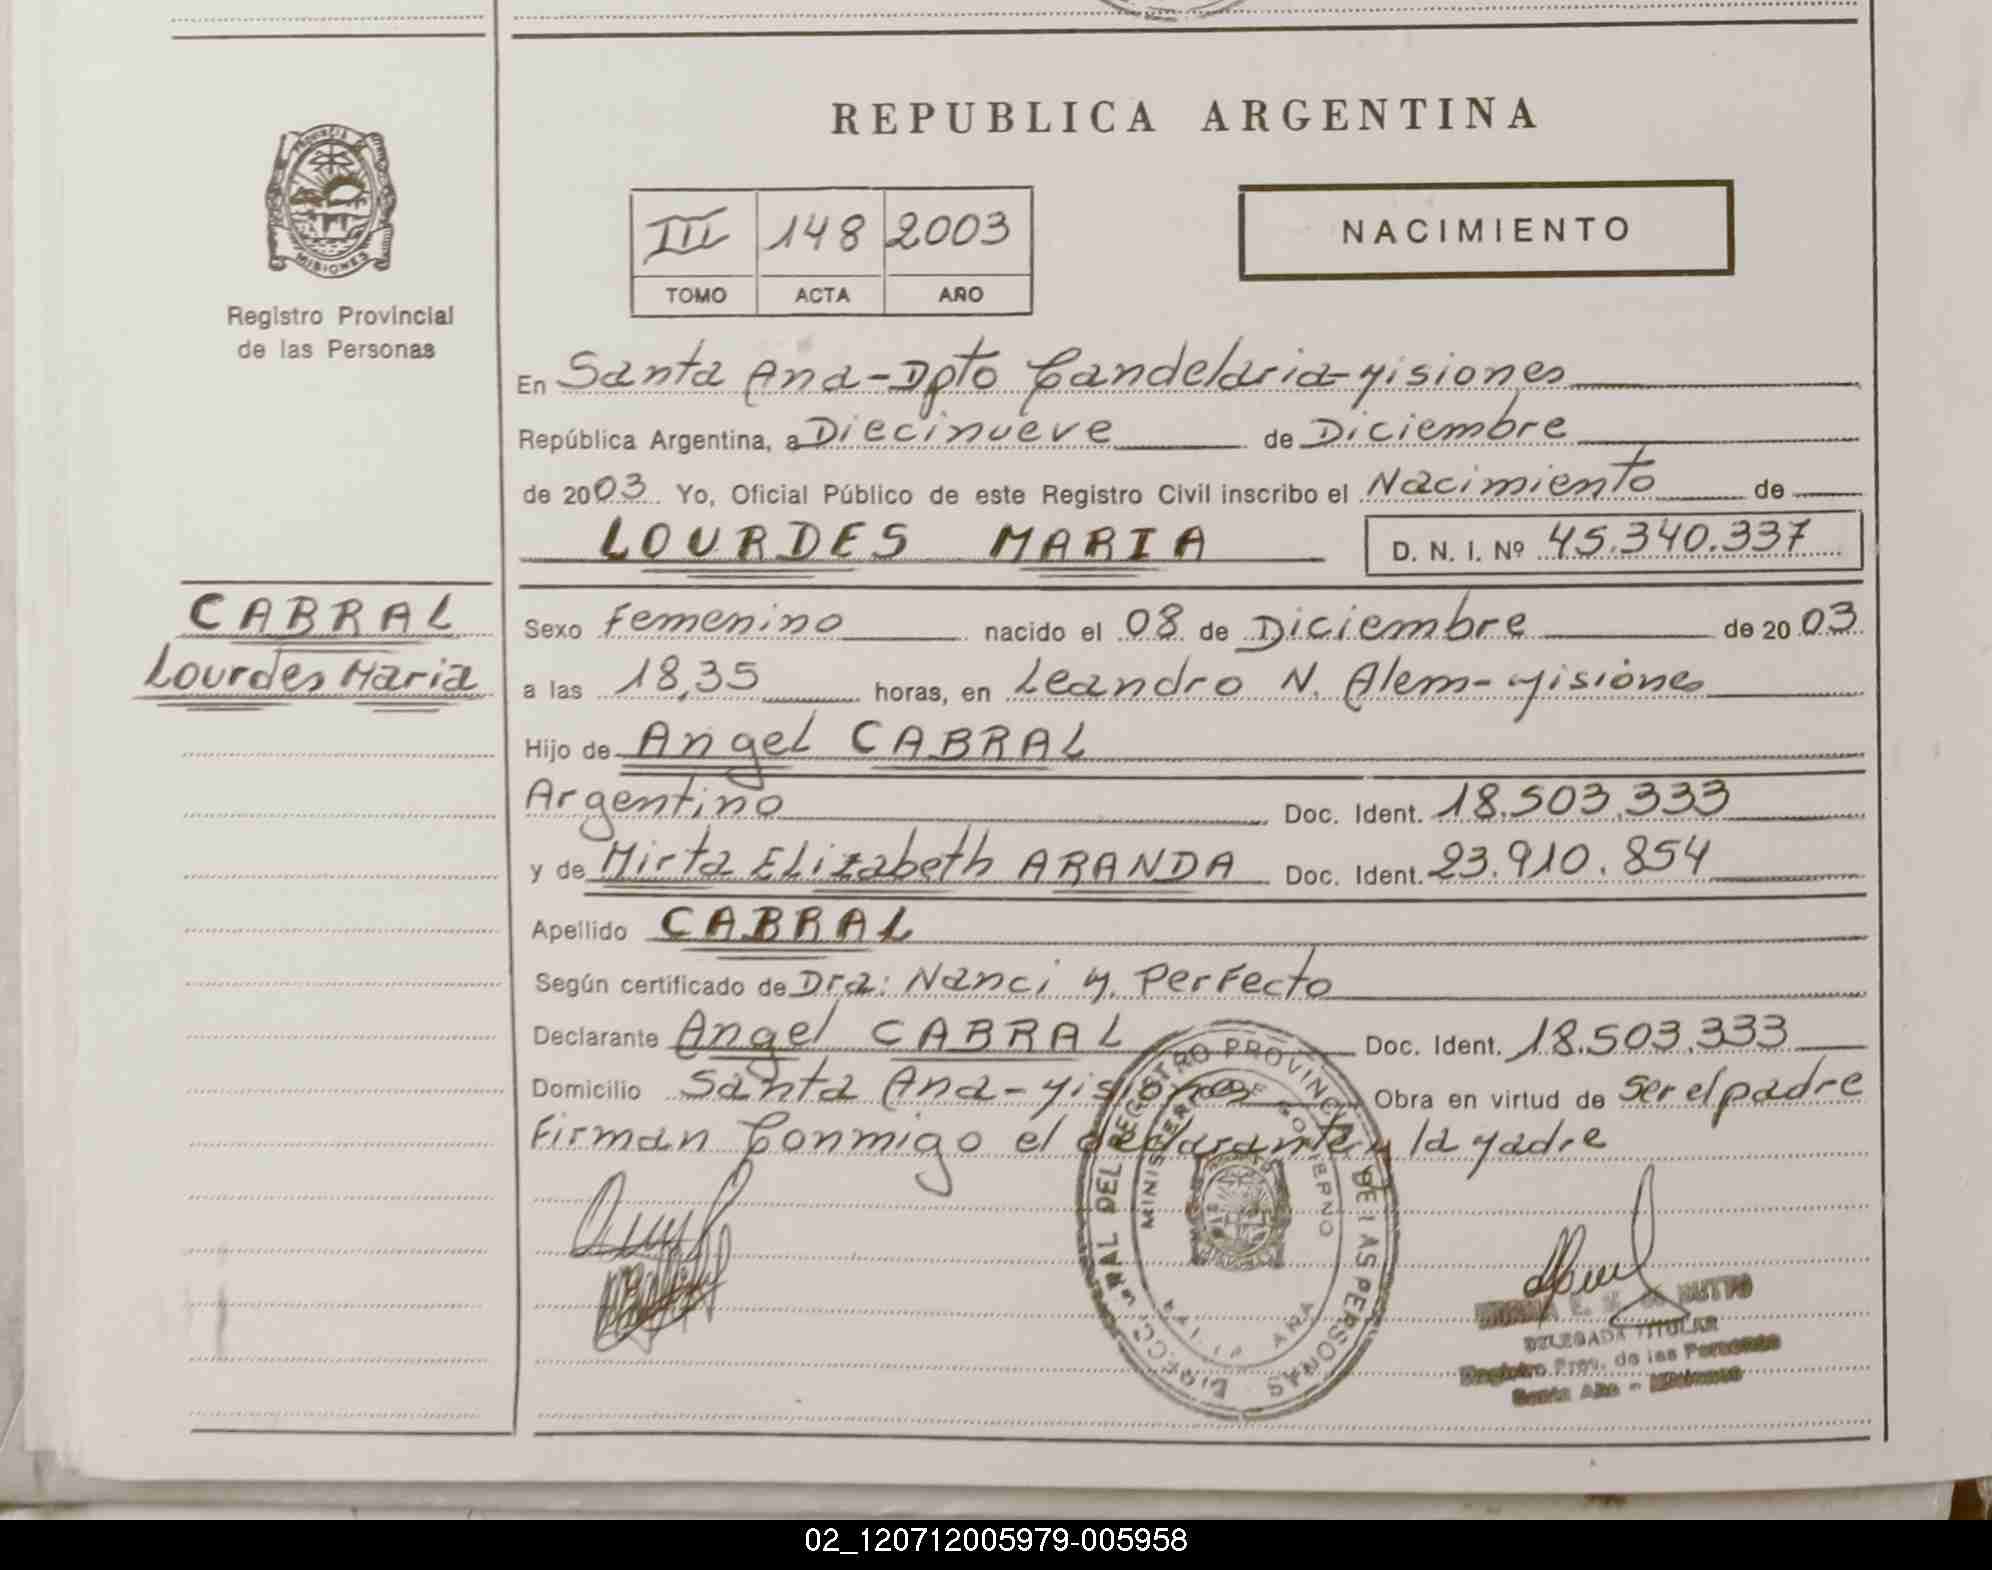 REPUBLICA ARGENTINA
PROVINCIA DE MISIONES
Registro Provincial
de las Personas
III 148 2003
TOMO ACTA AÑO
NACIMIENTO
En Santa Ana-Dpto Candelaria-Misiones
República Argentina, a Diecinueve de Diciembre
de 2003 Yo, Oficial Público de este Registro Civil inscribo el Nacimiento de
LOURDES MARIA D. N. I. Nº 45.340.337
CABRAL
Lourdes Maria
Sexo Femenino nacido el 08 de Diciembre de 2003
a las 18,35 horas, en Leandro N. Alem-Misiones
Hijo de Angel CABRAL
Argentino Doc. Ident. 18.503.333
y de Mirta Elizabeth ARANDA Doc. Ident. 23.910.854
Apellido CABRAL
Según certificado de Dra: Nanci M. Perfecto
Declarante Angel CABRAL Doc. Ident. 18.503.333
Domicilio Santa Ana-Misiones Obra en virtud de Ser el padre
Firman Conmigo el declarante y la Madre
DIRECCION GRAL DEL REGISTRO PROVINCIAL DE LAS PERSONAS
MINISTERIO DE GOBIERNO
DELEGADA TITULAR
Registro Prov. de las Personas
Santa Ana - Misiones
02_120712005979-005958